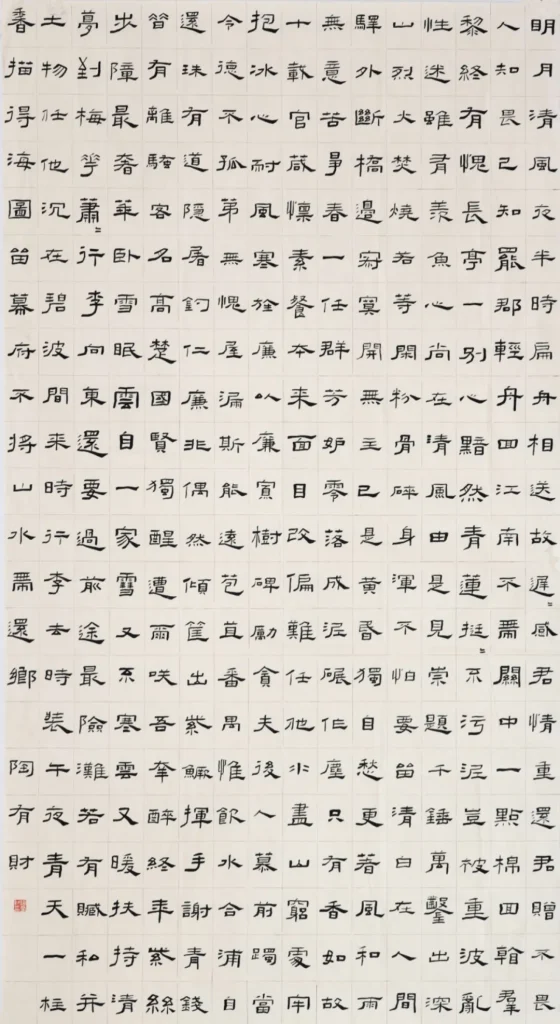 明月清風夜半時扁舟相送故遲〻感君情重還君贈不畏
人知畏己知罷郡輕舟回江南不帶關中一點棉回翰羣
黎終有愧長亭一別心黯然青蓮挺〻不污泥豈被重波亂
性迷雖有羨魚心尚在清風由是見崇題千錘萬鑿出深
山烈火焚燒若等閑粉骨碎身渾不怕要留清白在人間
驛外斷橋邊寂寞開無主已是黃昏獨自愁更著風和雨
無意苦爭春一任群芳妒零落成泥碾作塵只有香如故
十載官箴懍素餐本来面目改偏難任他水盡山窮處牢
抱冰心耐風寒廉以廉樹碑勵貪夫後人慕前躅當
令德不孤第無愧屋漏斯能遠苞苴番禺惟飲水合浦自
還珠有道隱居釣仁廉非偶然傾筐出紫鱖揮手謝青錢
昔有離騷客名高楚國賢獨醒遭爾咲吾奉醉終年紫絲
步障最奢華臥雪眠雲自一家雪又不寒雲又暖扶持清
夢到梅花蕭〻行李向東還要過前途最險灘若有贓私并
土物任他沉在碧波間来時行李去時裝午夜青天一柱
香描得海圖留幕府不將山水帶還鄉 陶有財